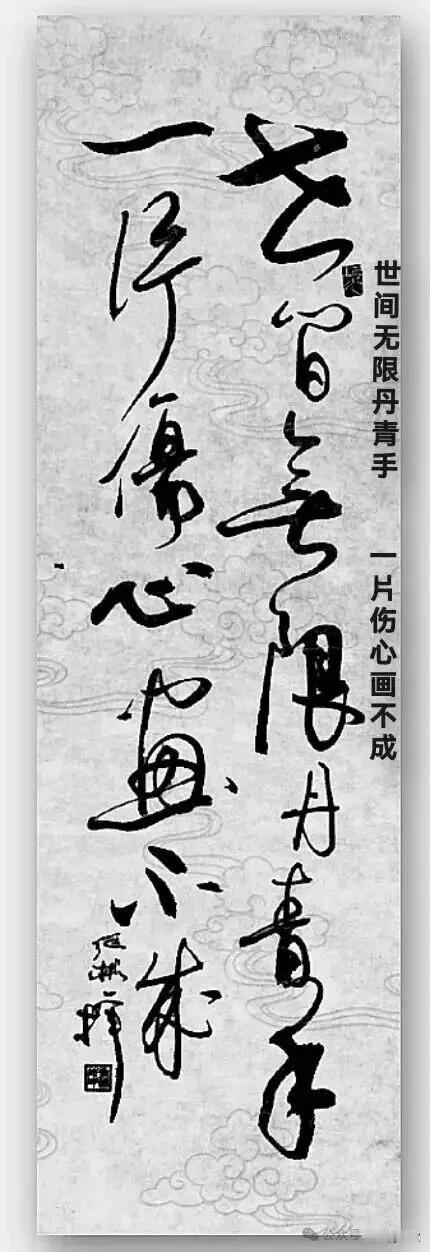 世间無限丹青手
一片傷心畫不成
世间无限丹青手
一片伤心画不成
公众号